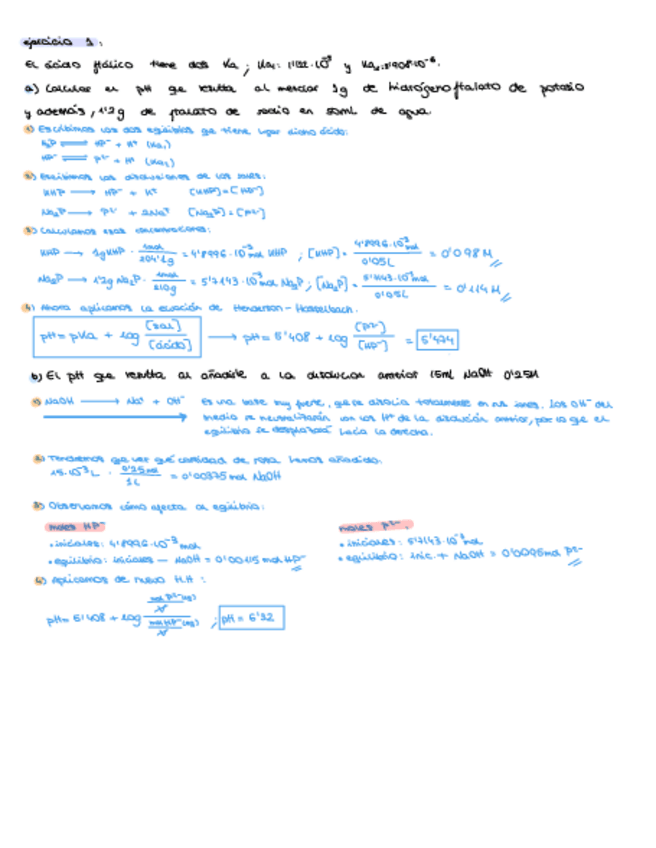 ejercicio 1:
El ácido ftálico tiene dos Ka; Ka₁: 1'122·10⁻³ y Ka₂: 3'908·10⁻⁶.
a) Calcular el pH que resulta al mezclar 1g de hidrógenoftalato de potasio
y además, 1'2g de ftalato de sodio en 50mL de agua.
1) Escribimos los dos equilibrios que tiene lugar dicho ácido:
H₂P ⇌ HP⁻ + H⁺ (Ka₁)
HP⁻ ⇌ P²⁻ + H⁺ (Ka₂)
2) Escribimos las disoluciones de las sales:
KHP → HP⁻ + K⁺ [KHP]=[HP⁻]
Na₂P → P²⁻ + 2Na⁺ [Na₂P]=[P²⁻]
3) Calculamos esas concentraciones:
KHP → 1gKHP · 1mol/204'2g = 4'8996·10⁻³ mol KHP ; [KHP] = 4'8996·10⁻³ mol/0'05L = 0'098M
Na₂P → 1'2g Na₂P · 1mol/210g = 5'7143·10⁻³ mol Na₂P ; [Na₂P] = 5'7143·10⁻³ mol/0'05L = 0'114M
4) Ahora aplicamos la ecuación de Henderson-Hasselbach.
pH = pKa + log [sal]/[ácido] → pH = 5'408 + log [P²⁻]/[HP⁻] = 5'474
b) El pH que resulta al añadirle a la disolución anterior 15mL NaOH 0'25M
1) NaOH → Na⁺ + OH⁻ Es una base muy fuerte, que se disocia totalmente en sus iones. Los OH⁻ del
medio se neutralizarán con los H⁺ de la disolución anterior, por lo que el
equilibrio se desplazará hacia la derecha.
2) Tendremos que ver qué cantidad de sosa hemos añadido:
15·10⁻³L · 0'25mol/1L = 0'00375mol NaOH
3) Observamos cómo afecta al equilibrio:
moles HP⁻ moles P²⁻.
• iniciales: 4'8996·10⁻³ mol • iniciales: 5'7143·10⁻³ mol
• equilibrio: iniciales − NaOH = 0'00115 mol HP⁻ • equilibrio: inic. + NaOH = 0'0095mol P²⁻
4) Aplicamos de nuevo H.H:
pH = 5'408 + log (mol P²⁻/V)/(mol HP⁻/V) ; pH = 6'32